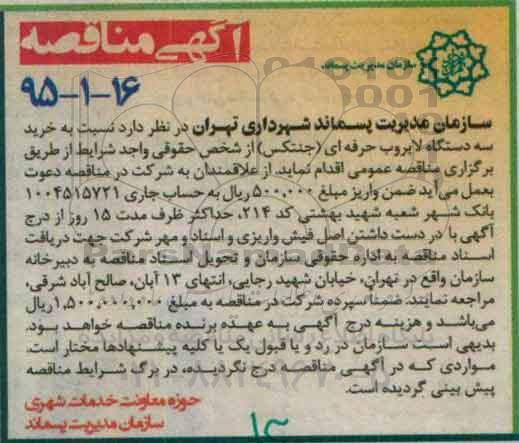 آگهی مناقصه
سازمان مدیریت پسماند
۹۵-۱-۱۶
سازمان مدیریت پسماند شهرداری تهران در نظر دارد نسبت به خرید
سه دستگاه لایروب حرفه ای (جنتکس) از شخص حقوقی واجد شرایط از طریق
برگزاری مناقصه عمومی اقدام نماید. از علاقمندان به شرکت در مناقصه دعوت
بعمل می‌آید ضمن واریز مبلغ ۵۰۰،۰۰۰ ریال به حساب جاری ۱۰۰۴۵۱۵۷۲۱
بانک شهر شعبه شهید بهشتی کد ۲۱۴، حداکثر ظرف مدت ۱۵ روز از درج
آگهی با در دست داشتن اصل فیش واریزی و اسناد و مهر شرکت جهت دریافت
اسناد مناقصه به اداره حقوقی سازمان و تحویل اسناد مناقصه به دبیرخانه
سازمان واقع در تهران، خیابان شهید رجایی، انتهای ۱۳ آبان، صالح آباد شرقی،
مراجعه نمایند. ضمناً سپرده شرکت در مناقصه به مبلغ ۱،۵۰۰،۰۰۰،۰۰۰ ریال
می‌باشد و هزینه درج آگهی به عهده برنده مناقصه خواهد بود.
بدیهی است سازمان در رد و یا قبول یک یا کلیه پیشنهادها مختار است.
مواردی که در آگهی مناقصه درج نگردیده، در برگ شرایط مناقصه
پیش بینی گردیده است.
حوزه معاونت خدمات شهری
سازمان مدیریت پسماند